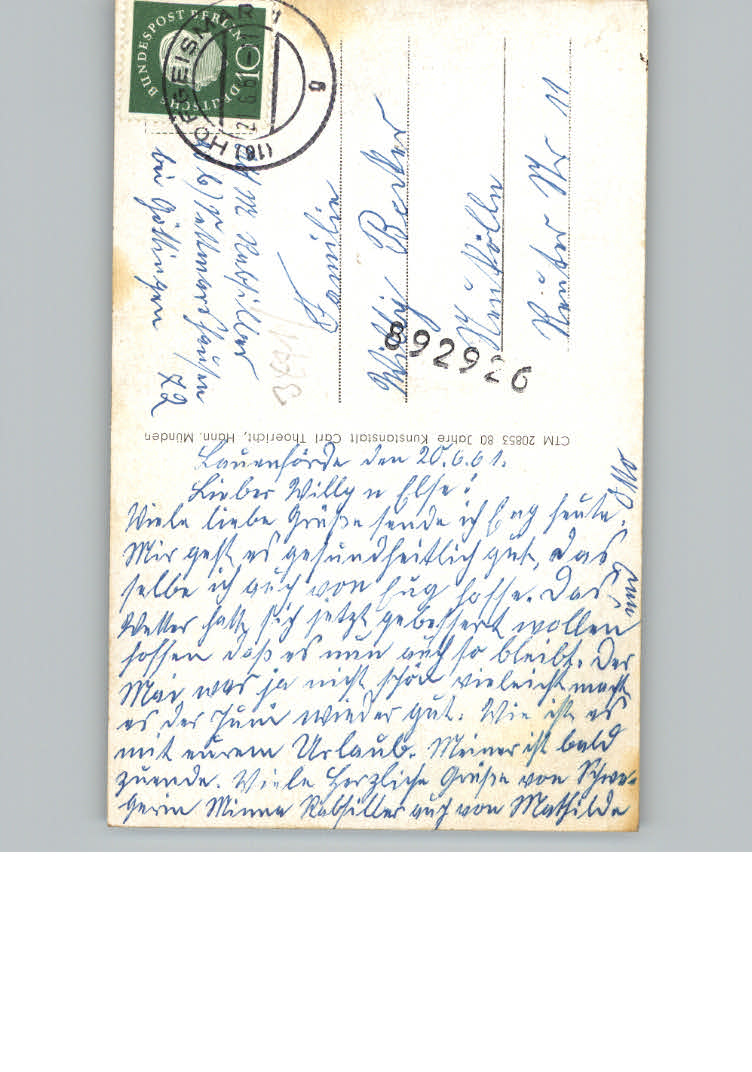 DEUTSCHE BUNDESPOST BERLIN
10
HOFGEISMAR 1
(16)
21.6.61
g
Familie
Willy Becker
Neukölln
Reuter Str 11
bei Göttingen
72
892926
CTM 20853 80 Jahre Kunstanstalt Carl Thoericht, Hann. Münden
Lauenförde den 20.6.61.
Lieber Willy u Else!
Viele liebe Grüße sende ich Eug heute.
Mir geht es gesundheitlich gut, das
selbe ich auch von Eug hoffe. Das
Wetter hatt sich jetzt gebessert wollen
hoffen daß es nun auch so bleibt. Der
Mai war ja nicht schön vieleicht macht
es der Juni wieder gut. Wie ist es
mit eurem Urlaub. Meiner ist bald
zuende. Viele Herzliche Grüße von Schwä-
gerin Minna auch von Mathilde
und Otto